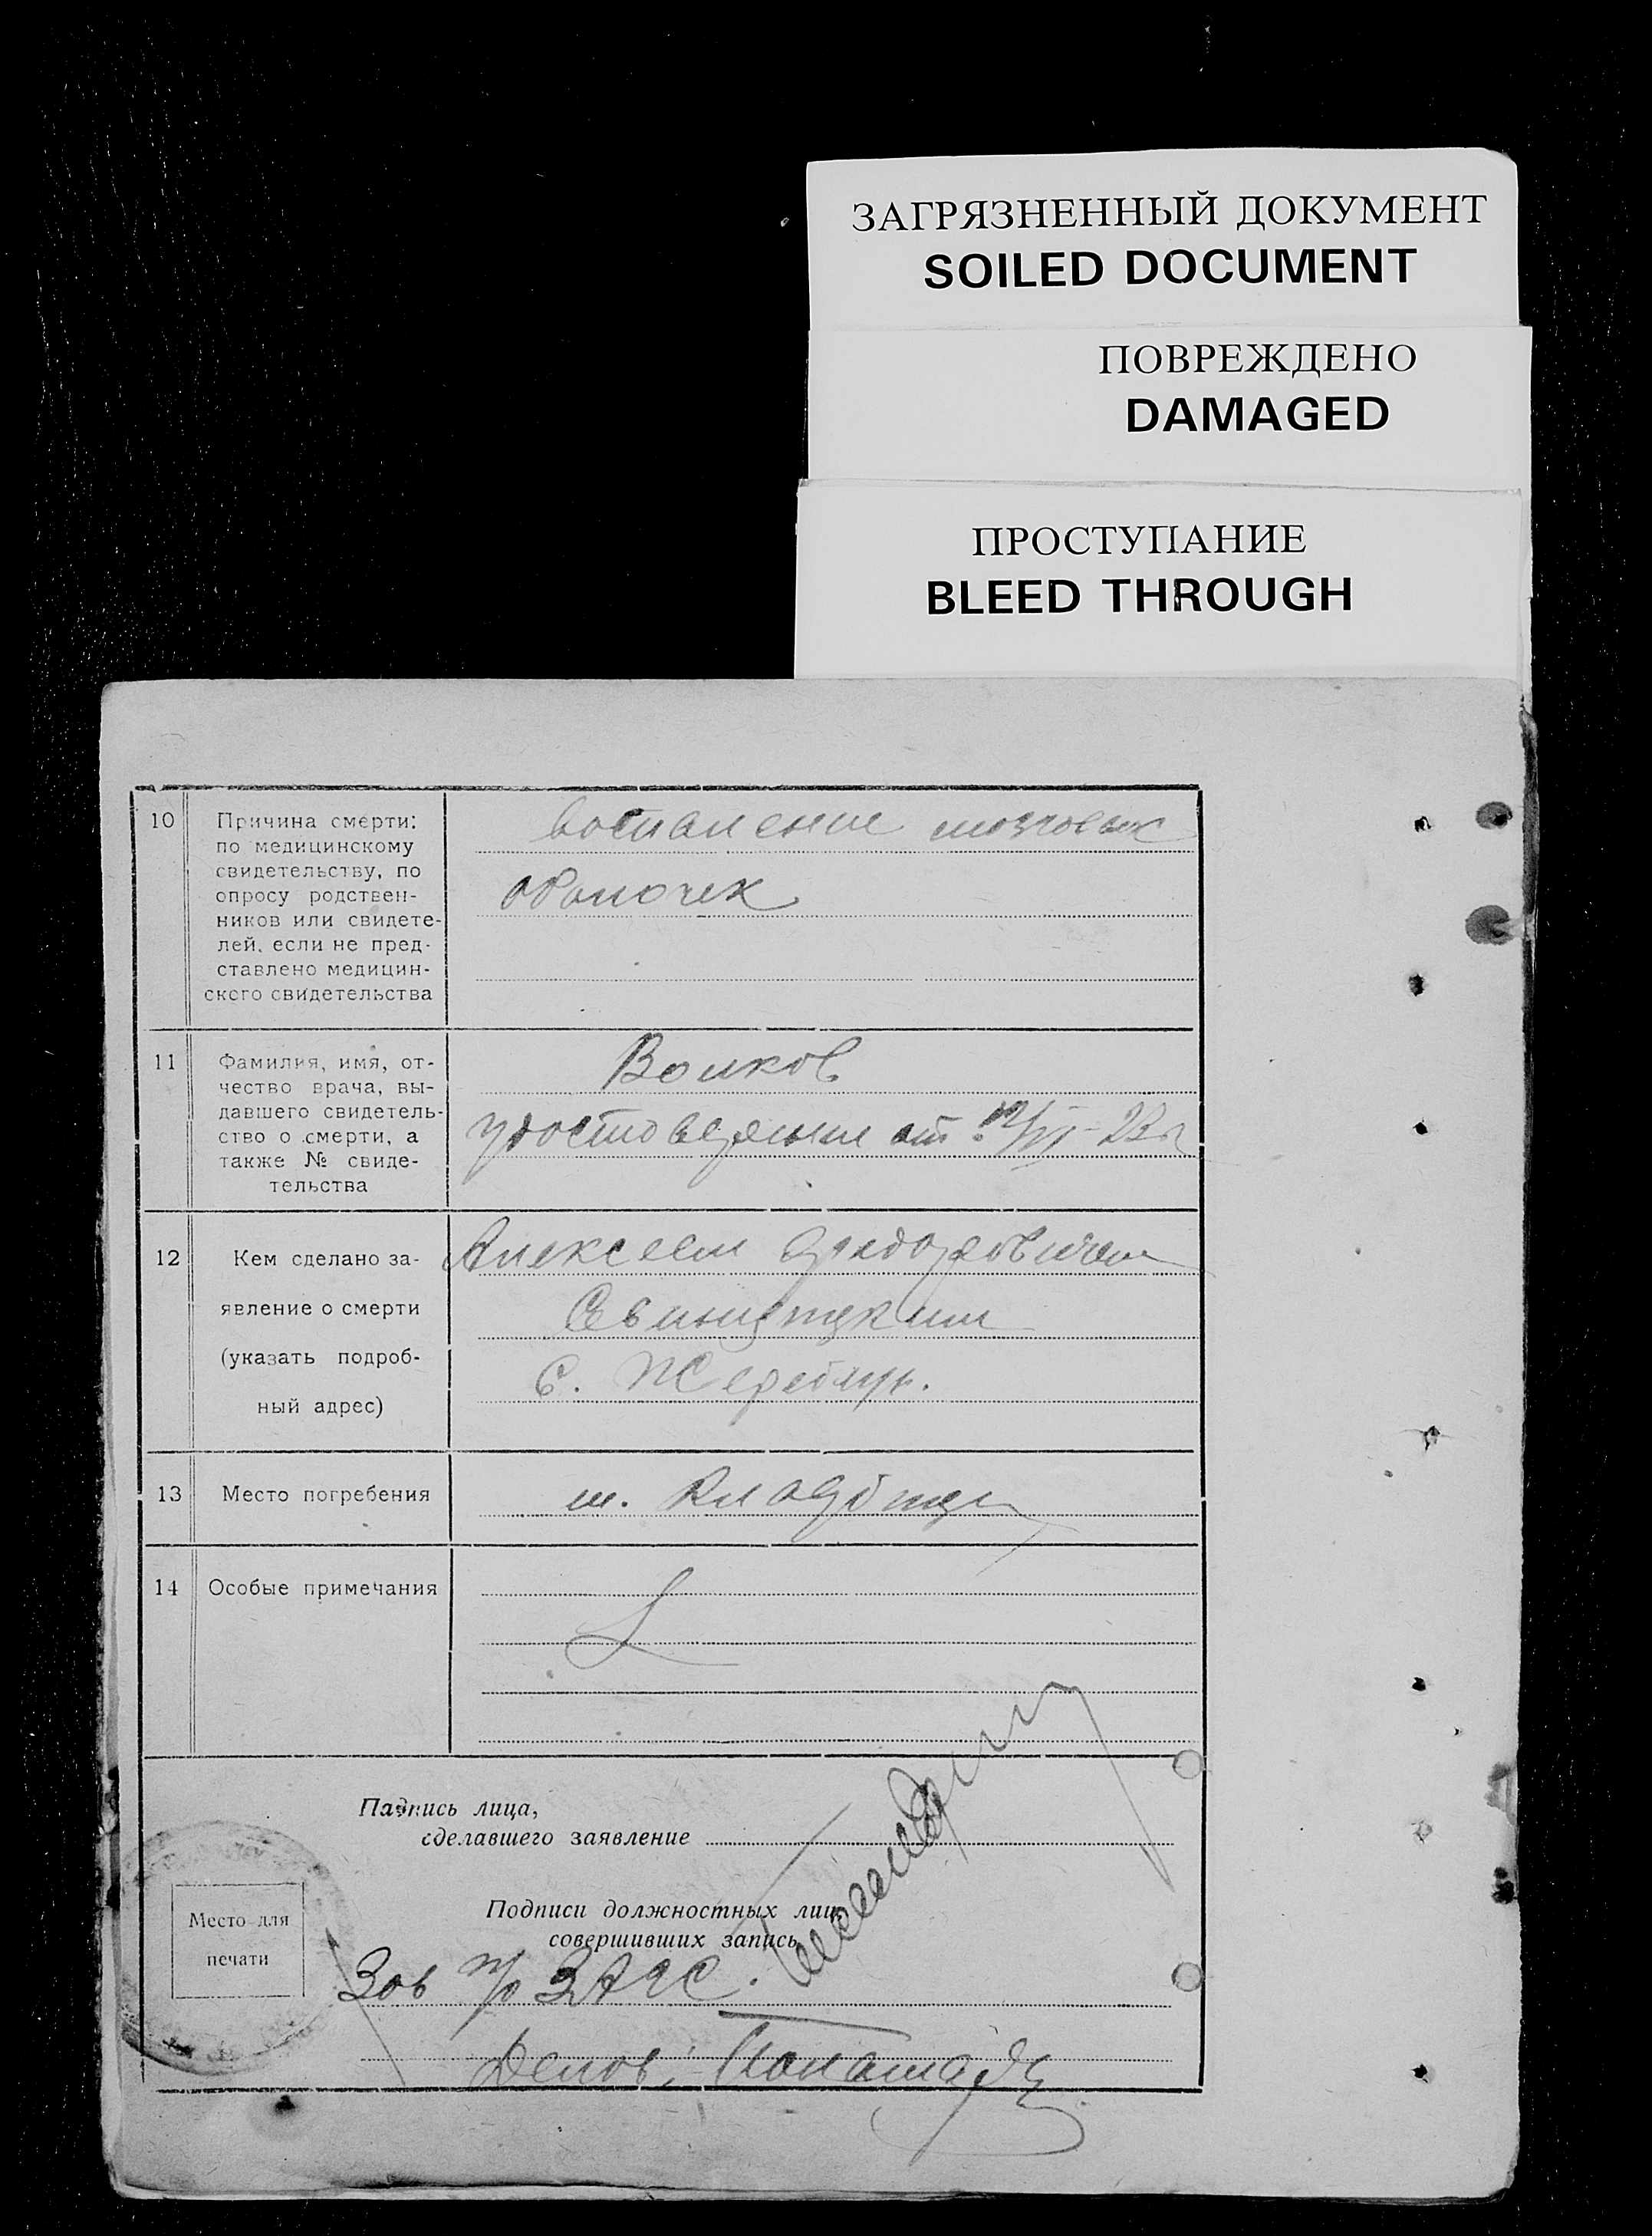 ЗАГРЯЗНЕННЫЙ ДОКУМЕНТ
SOILED DOCUMENT
ПОВРЕЖДЕНО
DAMAGED
ПРОСТУПАНИЕ
BLEED THROUGH
10
Причина смерти:
по медицинскому
свидетельству, по
опросу родствен-
ников или свидете-
лей, если не пред-
ставлено медицин-
ского свидетельства
воспаление мозговых
оболочек
11
Фамилия, имя, от-
чество врача, вы-
давшего свидетель-
ство о смерти, а
также № свиде-
тельства
Волков
удостоверение от
12
Кем сделано за-
явление о смерти
(указать подроб-
ный адрес)
Алексеем
с.
13
Место погребения
14
Особые примечания
Падпись лица,
сделавшего заявление
Подписи должностных лиц,
совершивших запись
Место для
печати
Зав ЗАГС
Делов.